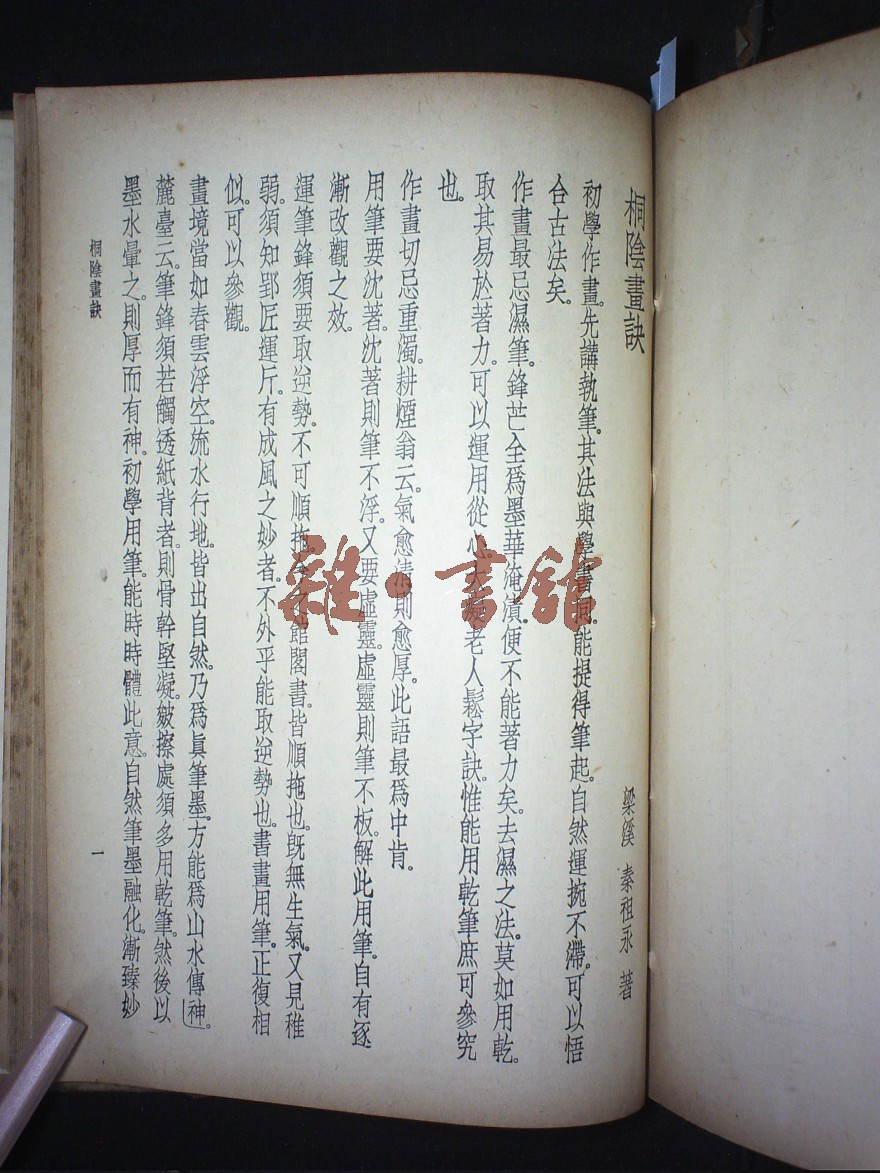 桐陰畫訣
梁谿 秦祖永 著
初學作畫。先講執筆。其法與學書同。能提得筆起。自然運捥不滯。可以悟
合古法矣。
作畫最忌濕筆。鋒芒全爲墨華淹漬。便不能著力矣。去濕之法。莫如用乾。
取其易於著力。可以運用從心。大癡老人鬆字訣。惟能用乾筆。庶可參究
也。
作畫切忌重濁。耕煙翁云。氣愈清則愈厚。此語最爲中肯。
用筆要沈著。沈著則筆不浮。又要虛靈。虛靈則筆不板。解此用筆。自有逐
漸改觀之效。
運筆鋒須要取逆勢。不可順拖。今之館閣書。皆順拖也。旣無生氣。又見稚
弱。須知郢匠運斤。有成風之妙者。不外乎能取逆勢也。書畫用筆。正復相
似。可以參觀。
畫境當如春雲浮空。流水行地。皆出自然。乃爲眞筆墨。方能爲山水傳神。
麓臺云。筆鋒須若觸透紙背者。則骨幹堅凝。皴擦處須多用乾筆。然後以
墨水暈之。則厚而有神。初學用筆。能時時體此意。自然筆墨融化。漸臻妙
桐陰畫訣
一
雜·書館